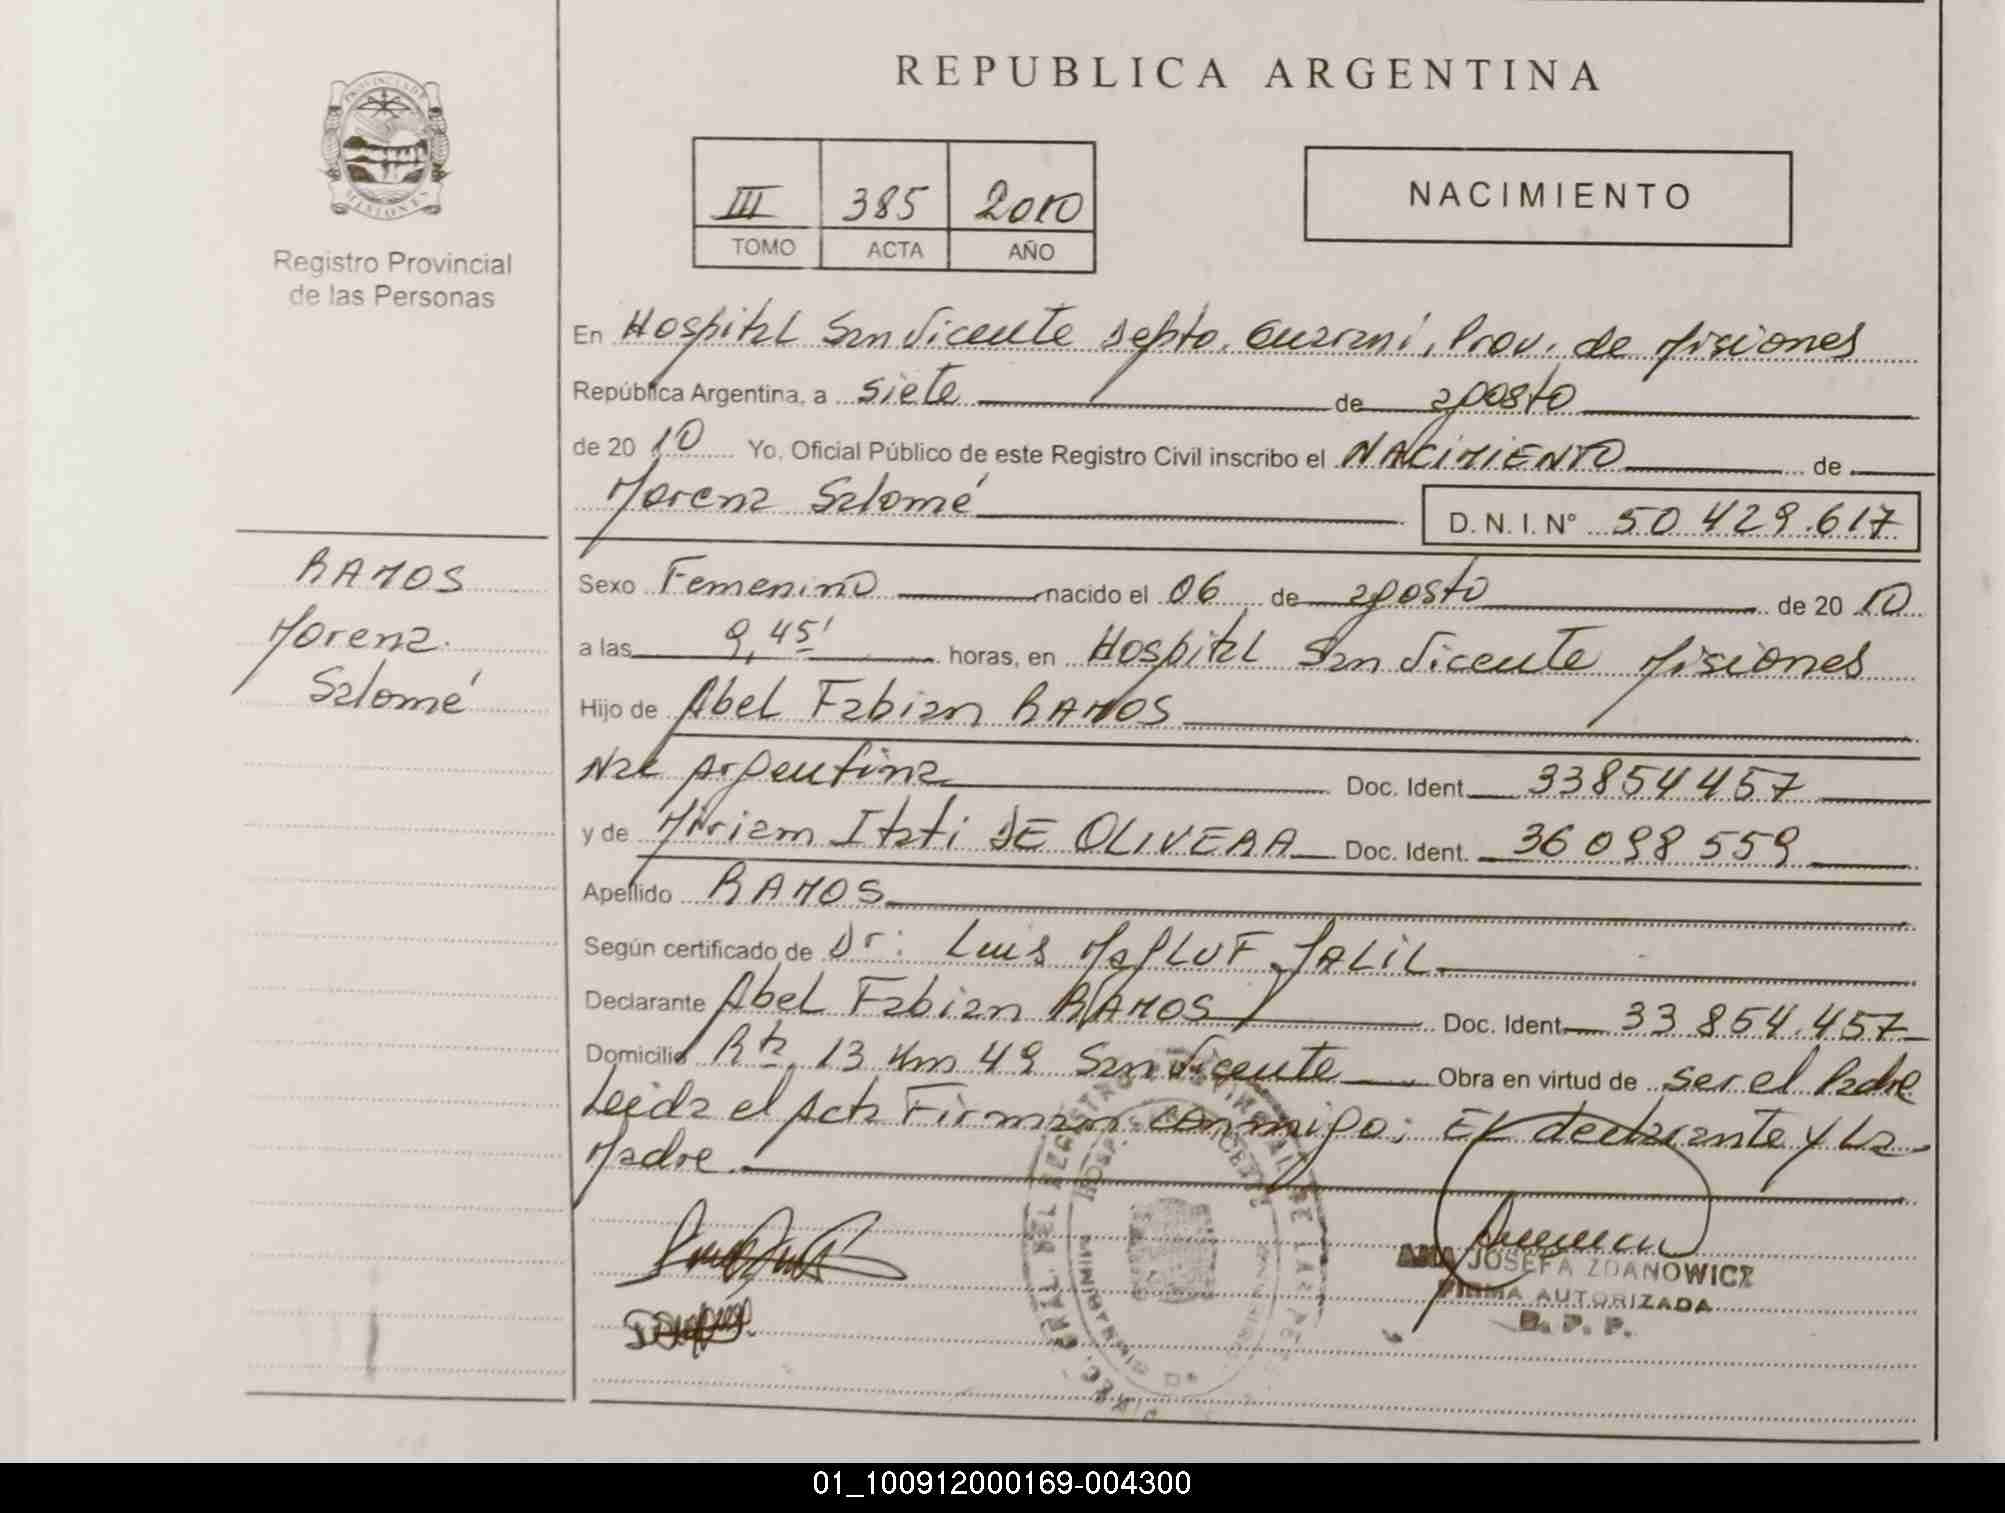 REPUBLICA ARGENTINA
PROVINCIA DE
MISIONES
Registro Provincial
de las Personas
III 385 2010
TOMO ACTA AÑO
NACIMIENTO
En Hospital San Vicente Depto. Guarani, Prov. de Misiones
República Argentina, a siete de agosto
de 20 10 Yo, Oficial Público de este Registro Civil inscribo el NACIMIENTO de
Morena Salomé D. N. I. N° 50.429.617
RAMOS
Morena
Salomé
Sexo Femenino nacido el 06 de agosto de 20 10
a las 9,45' horas, en Hospital San Vicente Misiones
Hijo de Abel Fabian RAMOS
Nac Argentina Doc. Ident. 33854457
y de Miriam Itati DE OLIVERA Doc. Ident. 36098559
Apellido RAMOS
Según certificado de Dr: Luis MAFLUF JALIL
Declarante Abel Fabian RAMOS Doc. Ident. 33 854.457
Domicilio Rta 13 Km 49 San Vicente Obra en virtud de ser el Padre
Leida el Acta Firman conmigo; El declarante y La
Madre.
ANA JOSEFA ZDANOWICZ
FIRMA AUTORIZADA
R. P. P.
01_100912000169-004300